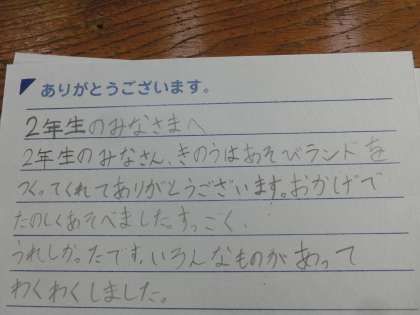 ありがとうございます。
2年生のみなさまへ
2年生のみなさん、きのうはあそびランドを
つくってくれてありがとうございます。おかげで
たのしくあそべました。すっごく、
うれしかったです。いろんなものがあって
わくわくしました。